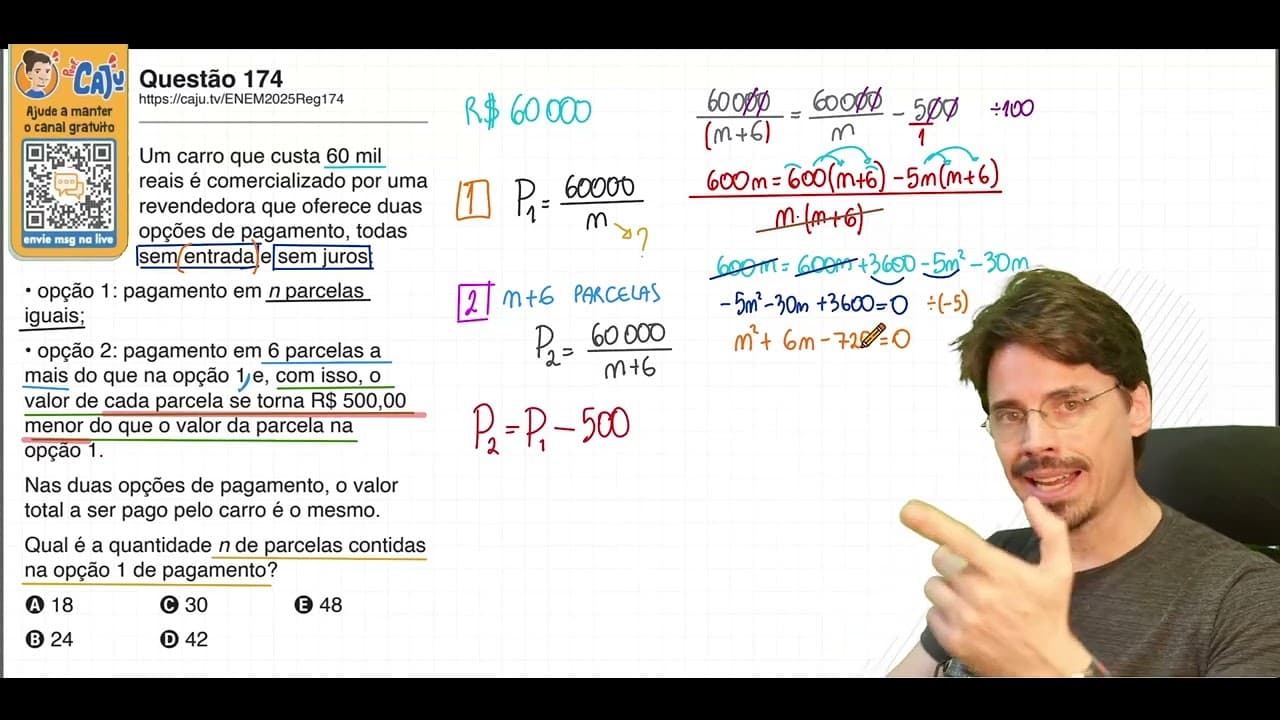 Prof CAJu
Ajude a manter
o canal gratuito
envie msg na live
Questão 174
https://caju.tv/ENEM2025Reg174
Um carro que custa 60 mil
reais é comercializado por uma
revendedora que oferece duas
opções de pagamento, todas
sem entrada e sem juros:
• opção 1: pagamento em n parcelas
iguais;
• opção 2: pagamento em 6 parcelas a
mais do que na opção 1 e, com isso, o
valor de cada parcela se torna R$ 500,00
menor do que o valor da parcela na
opção 1.
Nas duas opções de pagamento, o valor
total a ser pago pelo carro é o mesmo.
Qual é a quantidade n de parcelas contidas
na opção 1 de pagamento?
A 18
C 30
E 48
B 24
D 42
R$ 60 000
1 P₁ = 60000
n
?
2 n+6 PARCELAS
P₂ = 60 000
n+6
P₂ = P₁ − 500
60000 = 60000 − 500 ÷100
(n+6) n 1
600n = 600(n+6) − 5n(n+6)
n·(n+6)
600n = 600n + 3600 − 5n² − 30n
−5n² − 30n + 3600 = 0 ÷(−5)
n² + 6n − 720 = 0